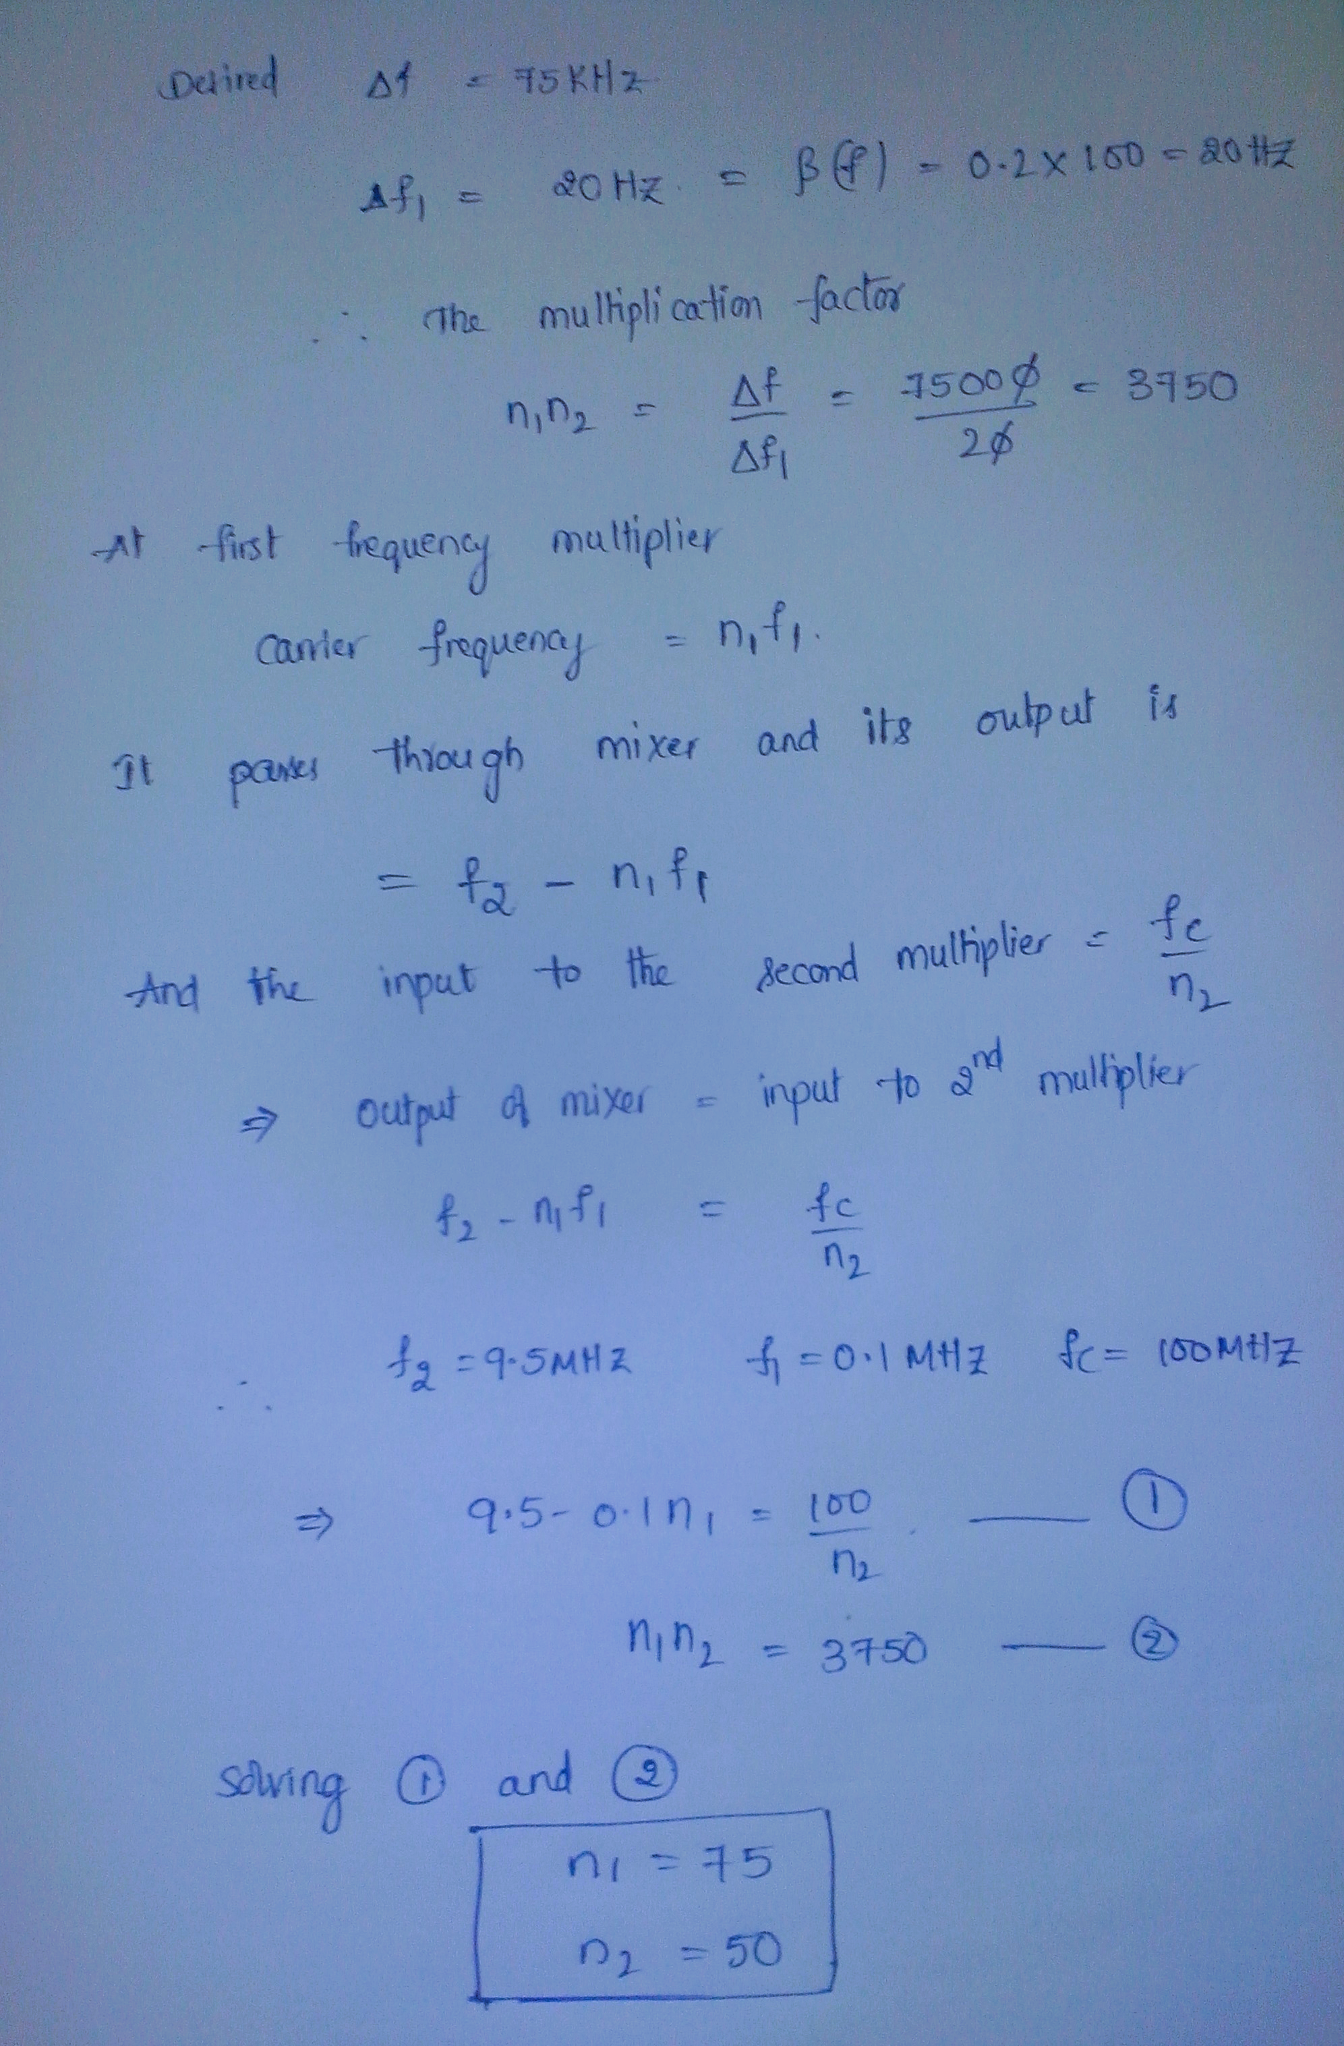 Desired Δf = 75KHz
Δf₁ = 20 Hz. = β(f) = 0.2 x 100 = 20Hz
∴ The multiplication factor
n₁n₂ = Δf/Δf₁ = 75000/20 = 3750
At first frequency multiplier
carrier frequency = n₁f₁.
It passes through mixer and its output is
= f₂ - n₁f₁
And the input to the second multiplier = fc/n₂
⇒ output of mixer = input to 2nd multiplier
f₂ - n₁f₁ = fc/n₂
∴ f₂ = 9.5MHz f₁ = 0.1 MHz fc = 100MHz
⇒ 9.5 - 0.1n₁ = 100/n₂ — ①
n₁n₂ = 3750 — ②
solving ① and ②
n₁ = 75
n₂ = 50